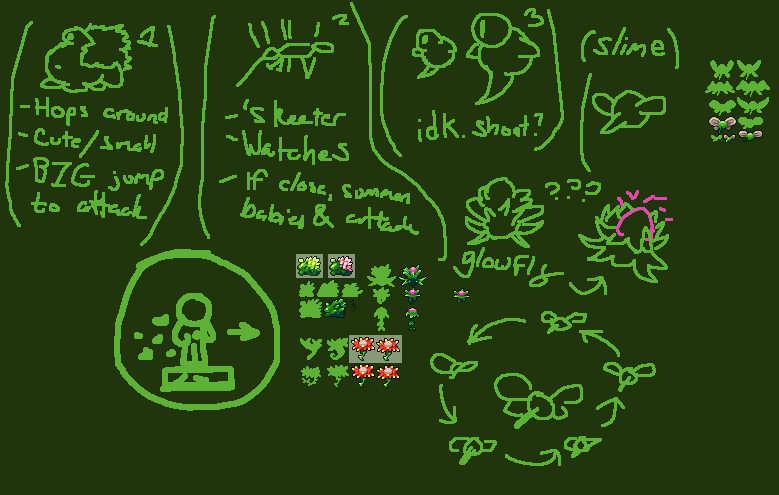 1
- Hops around
- Cute/small
- BIG jump
to attack
2
- 'skeeter
- Watches
- If close, summon
babies & attack
3
idk. shoot?
(slime)
???
glowfly